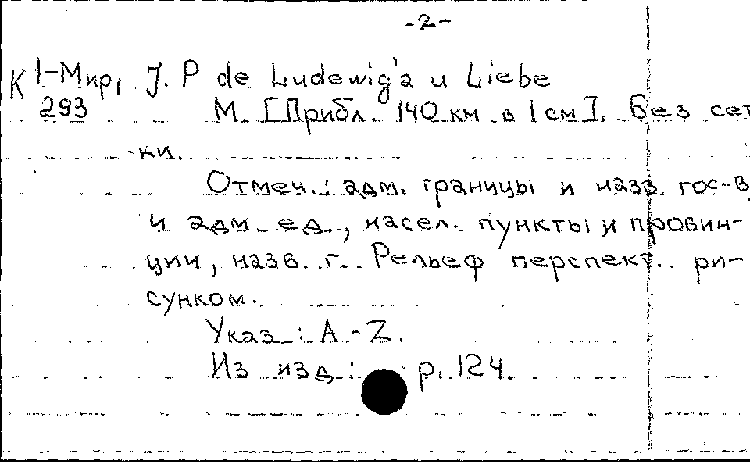 -2-
К 1-Мир, J. P de Ludewig'a и Liebe
293 М. [Прибл. 140 км в 1 см]. Без сет
ки.
Отмеч.: адм. границы и назв. гос-в
и адм. ед., насел. пункты и провин-
ции, назв. г. Рельеф перспект. ри-
сунком.
Указ.: A-Z.
Из изд.: p. 124.